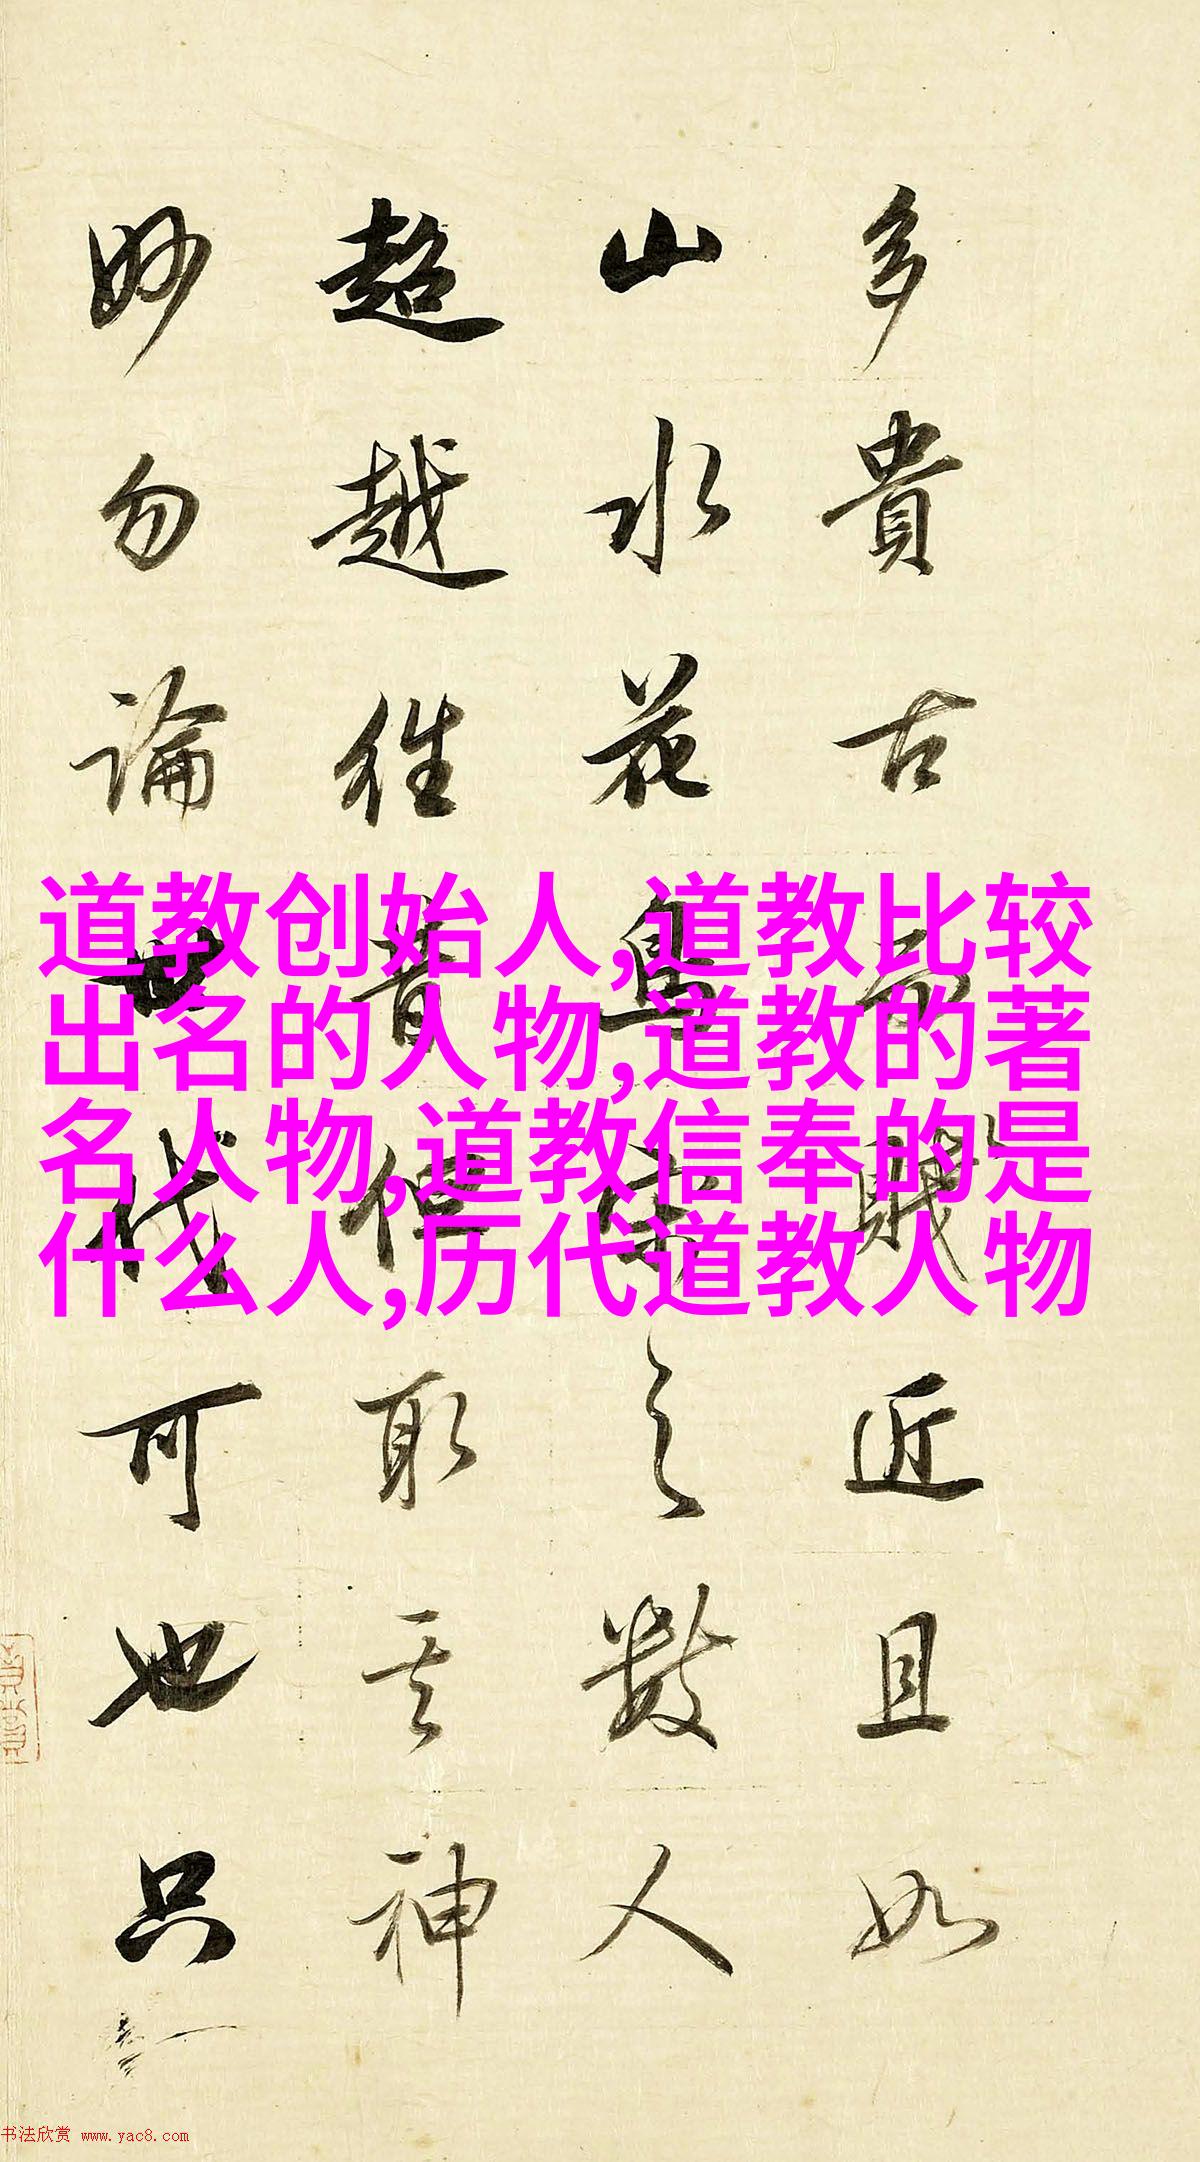 多貴古而賤近且如
山水花鳥宋之數人
超越往昔但取其神
妙勿論世代可也只
道教创始人,道教比较
出名的人物,道教的著
名人物,道教信奉的是
什么人,历代道教人物
书法欣赏 www.yac8.com